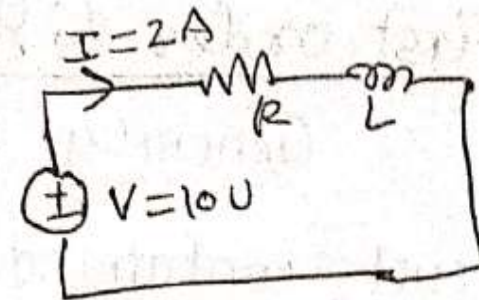 I=2A
R
L
± V=10V